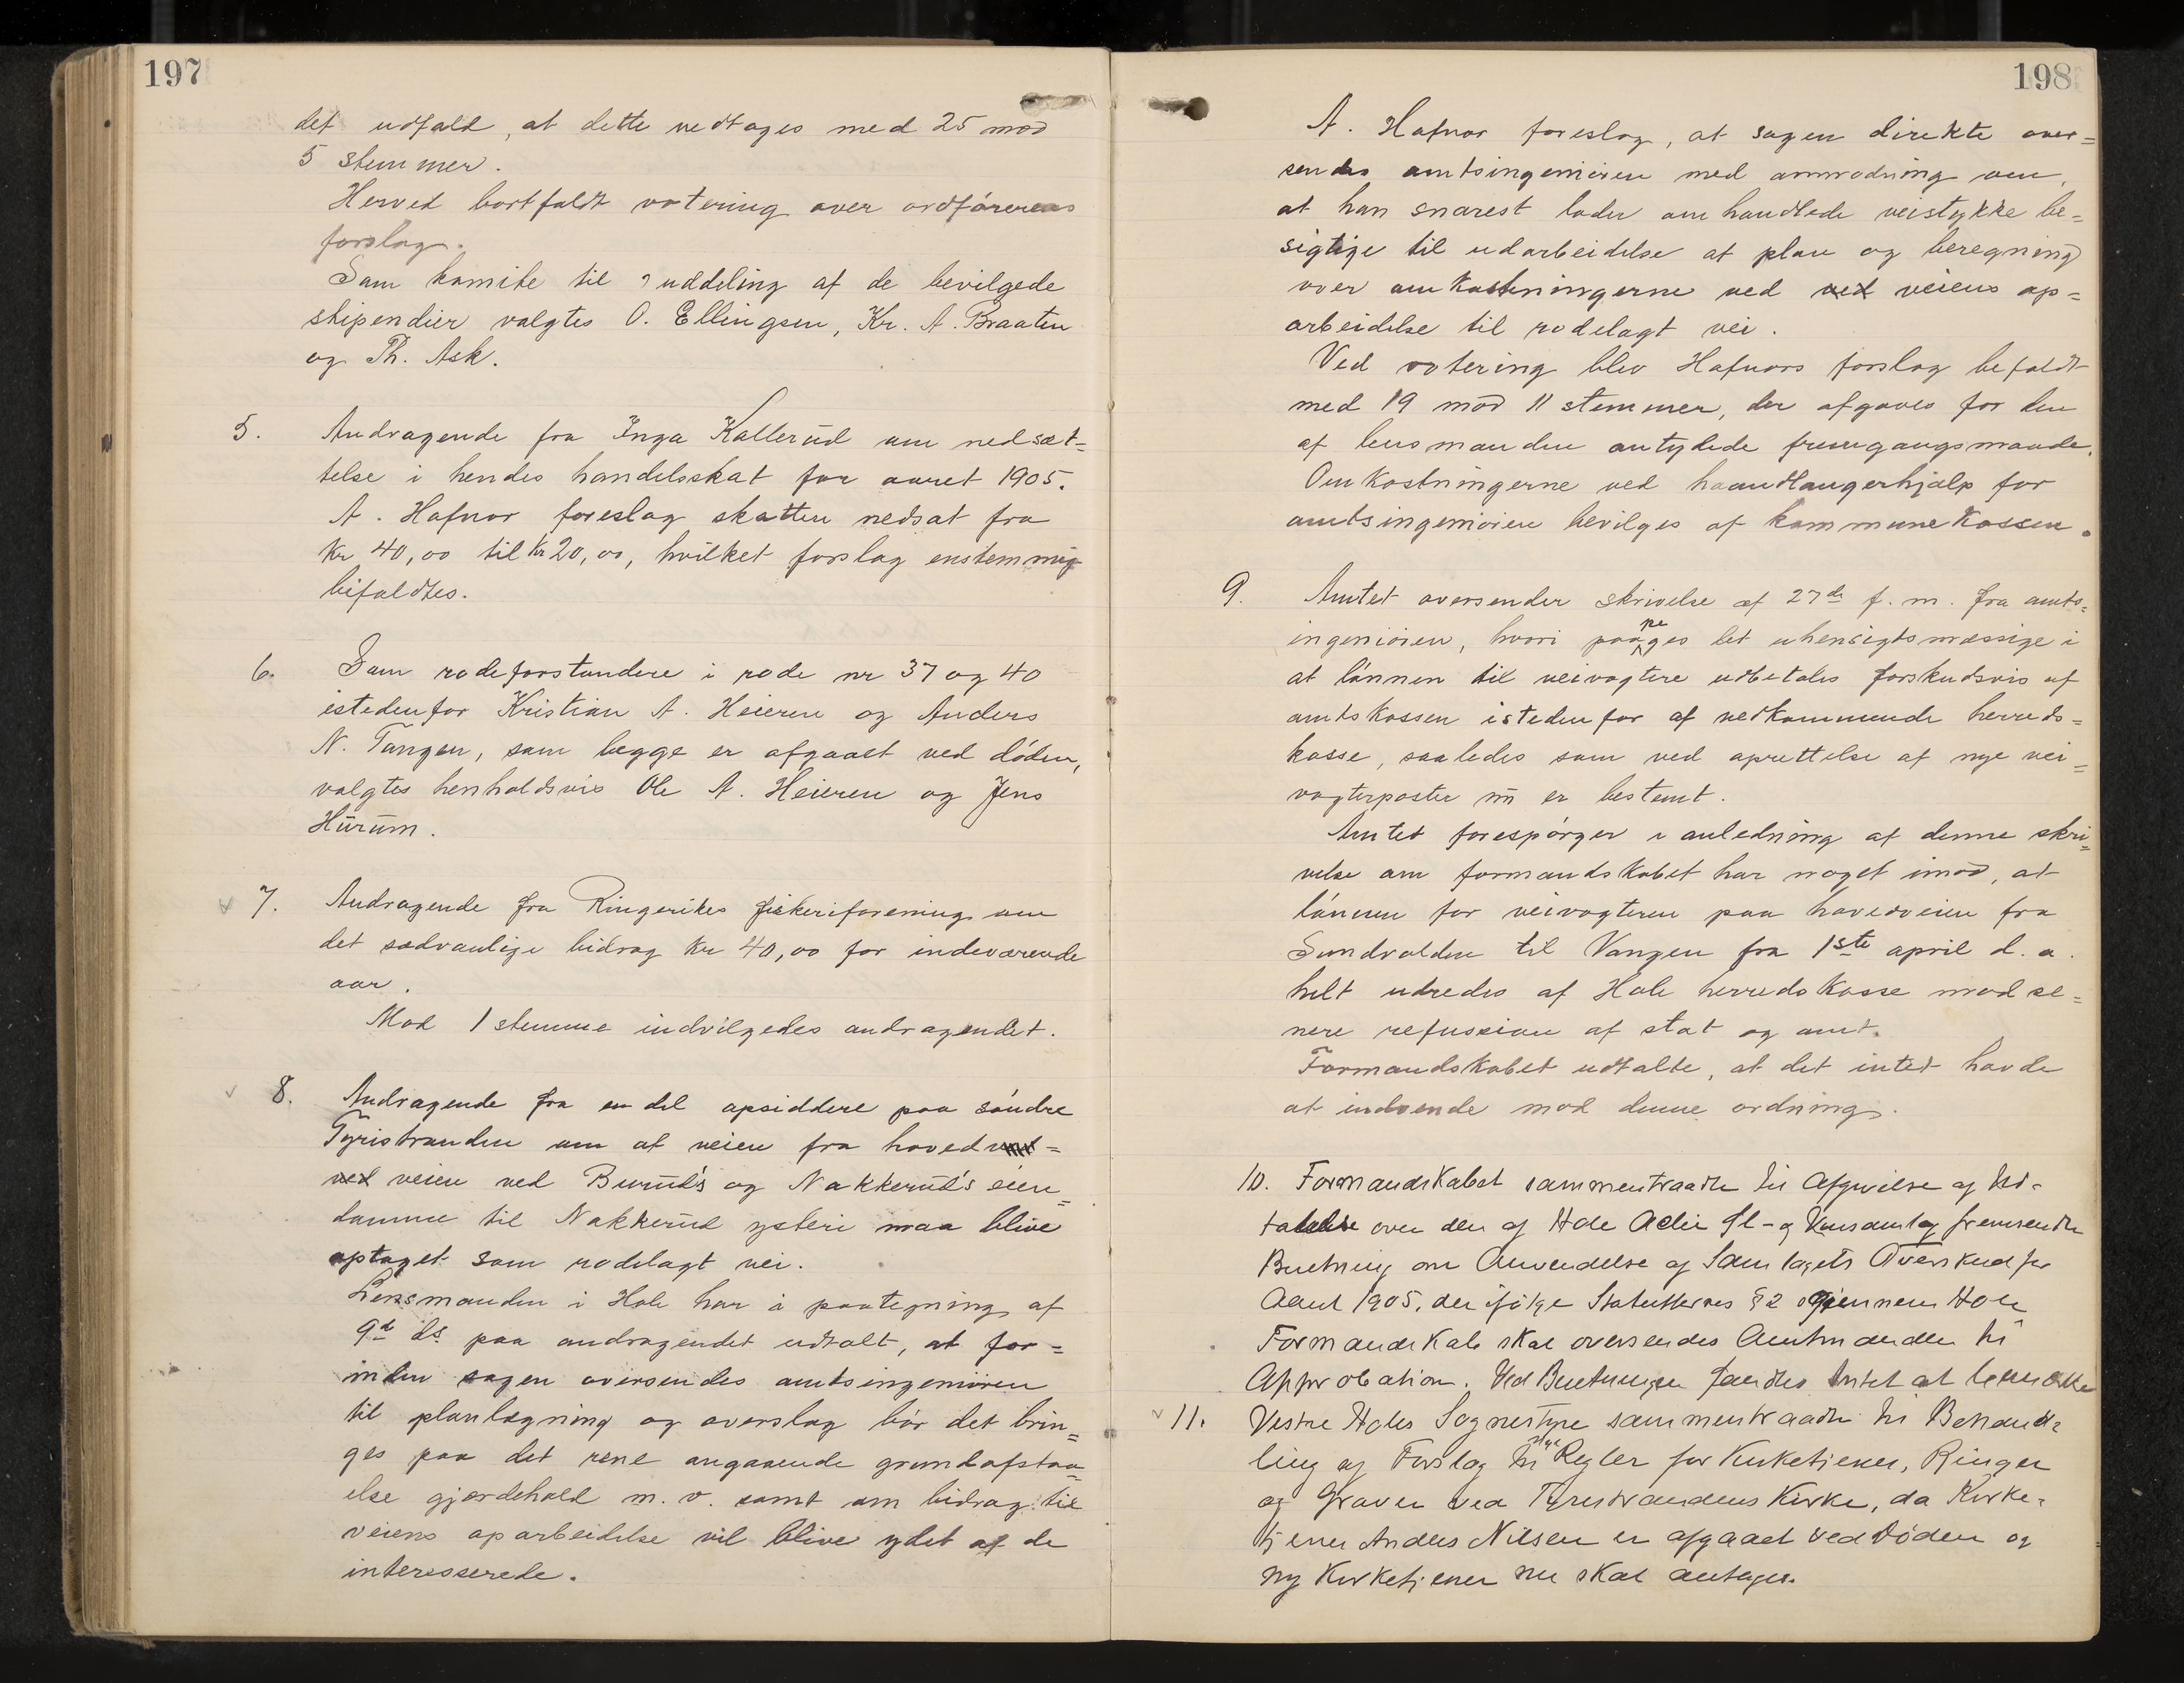 197
det udfald, at dette vedtages med 25 mod
5 stemmer.
Herved bortfaldt votering over ordførerens
forslag.
Som komite til uddeling af de bevilgede
stipendier valgtes O. Ellingsen, Kr. A. Braaten
og Th. Ask.
5. Andragende fra Inga Kallerud om nedsæt=
telse i hendes handelsskat for aaret 1905.
A. Hafnor foreslog skatten nedsat fra
kr 40,00 til kr 20,00, hvilket forslag enstemmig
bifaldtes.
6. Som rodeforstandere i rode nr 37 og 40
istedenfor Kristian A. Heieren og Anders
N. Tangen, som begge er afgaaet ved døden,
valgtes henholdsvis Ole A. Heieren og Jens
Hurum.
7. Andragende fra Ringerikes fiskeriforening om
det sædvanlige bidrag kr 40,00 for indeværende
aar.
Mod 1 stemme indvilgedes andragendet.
8. Andragende fra en del opsiddere paa søndre
Tyristranden om at veien fra hoved=
ved veien ved Buruds og Nakkeruds eien=
domme til Nakkerud ysteri maa blive
optaget som rodelagt vei.
Lensmanden i Hole har i paategning af
9d ds. paa andragendet udtalt, at for=
inden sagen oversendes amtsingeniøren
til planlægning og overslag bør det brin=
ges paa det rene angaaende grundafstaa=
else gjerdehold m. v. samt om bidrag til
veiens oparbeidelse vil blive ydet af de
interesserede.
198
A. Hafnor foreslog, at sagen direkte over=
sendes amtsingeniøren med anmodning om,
at han snarest lader omhandlede veistykke be=
sigtige til udarbeidelse af plan og beregning
over omkostningerne ved ved veiens op=
arbeidelse til rodelagt vei.
Ved votering blev Hafnors forslag bifaldt
med 19 mod 11 stemmer, der afgaves for den
af lensmanden antydede fremgangsmaade.
Omkostningerne ved haandlangerhjælp for
amtsingeniøren bevilges af kommunekassen.
9. Amtet oversender skrivelse af 27de f. m. fra amts=
ingeniøren, hvori paapeges det uhensigtsmæssige i
at lønnen til veivogtere udbetales forskudsvis af
amtskassen istedenfor af vedkommende herreds=
kasse, saaledes som ved oprettelse af nye vei=
vogterposter nu er bestemt.
Amtet forespørger i anledning af denne skri=
velse om formandskabet har noget imod, at
lønnen for veivogteren paa hovedveien fra
Sundvolden til Vangen fra 1ste april d. a.
helt udredes af Hole herredskasse mod se=
nere refussion af stat og amt.
Formandskabet udtalte, at det intet havde
at indvende mod denne ordning.
10. Formandskabet sammentraadte til Afgivelse af Ud-
talelse over den af Hole Actie Øl- og Vinsamlag fremsendte
Beretning om Anvendelse af Samlagets Overskud for
Aaret 1905, der ifølge Statutternes § 2 gjennem Hole
Formandskab skal oversendes Amtmanden til
Approbation. Ved Beretningen fandtes Intet at bemærke
11. Vestre Holes Sognestyre sammentraadte til Behand=
ling af Forslag til nye Regler for Kirketjener, Ringer
og Graver ved Tyristrandens Kirke, da Kirke=
tjener Anders Nilsen er afgaaet ved Døden og
ny Kirketjener nu skal antages.